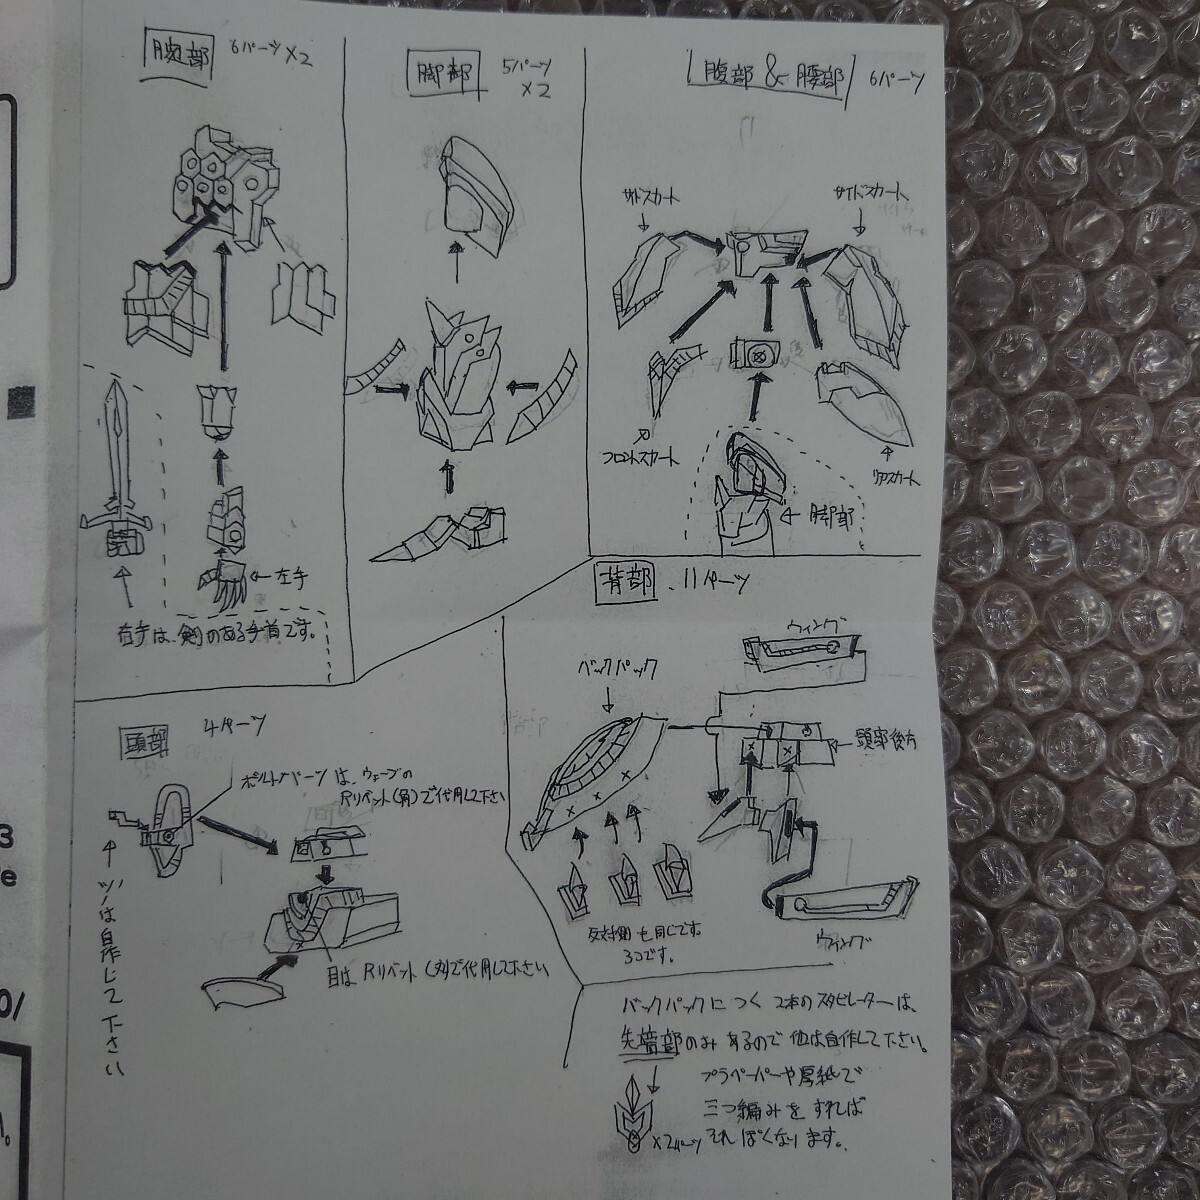 腕部 6パーツ×2
脚部 5パーツ
×2
腹部 & 腰部 6パーツ
サイドスカート
サイドスカート
フロントスカート
リアスカート
← 脚部
← 左手
右手は、剣のある手首です。
背部 11パーツ
ウィング
バックパック
← 頭部後方
反対側も同じです。
3つです。
ウィング
頭部 4パーツ
ボルトパーツは、ウェーブの
Rリベット(角)で代用して下さい
← ツノは自作して下さい
目は Rリベット(丸)で代用して下さい
バックパックにつく 2本のスタビレーターは、
先端部のみあるので他は自作して下さい。
プラペーパーや厚紙で
三つ編みをすれば
×2パーツ それっぽくなります。
3
e
0/